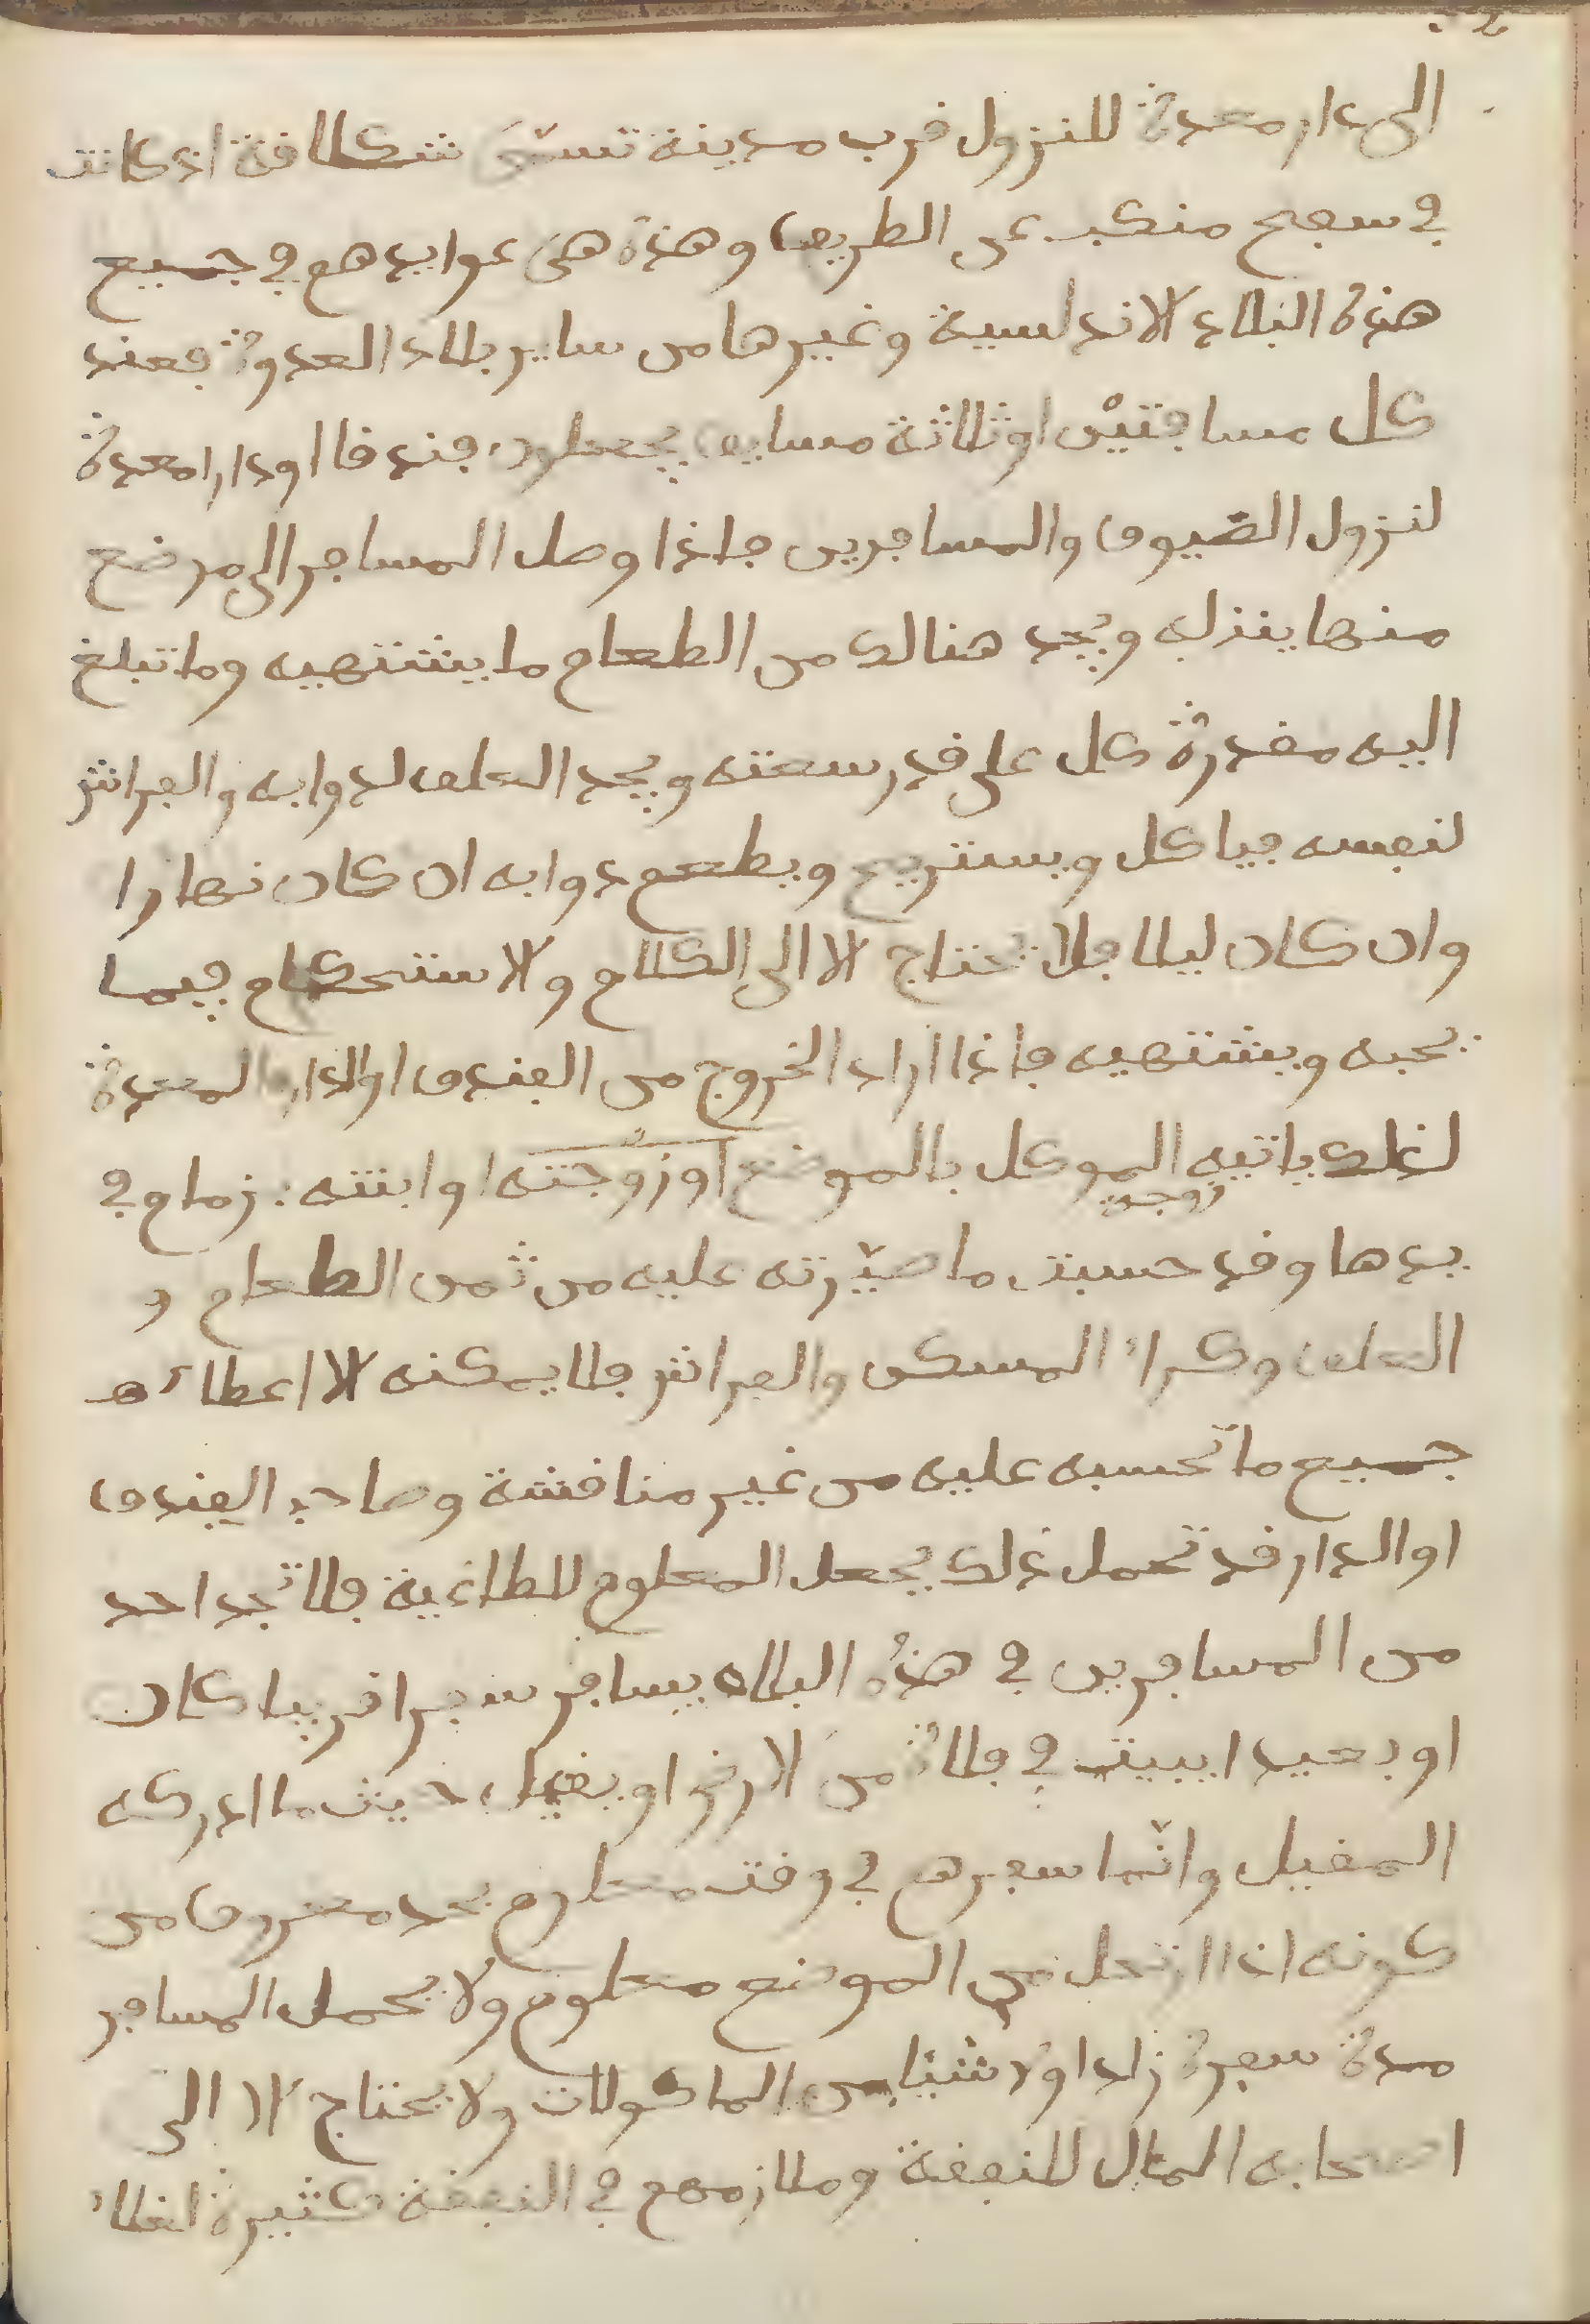 الى دار معدة للنزول قرب مدينة تسمى شكلافة اذ كانت
في سفح منكب عن الطريق وهذه هي عوايدهم في جميع
هذه البلاد الاندلسية وغيرها من ساير بلاد العدوة فعند
كل مسافتين او ثلاثة مسايف يجعلون فندقا او دارا معدة
لنزول الضيوف والمسافرين فاذا وصل المسافر الى موضع
منها ينزل به ويجد هنالك من الطعام ما يشتهيه وما تبلغ
اليه مقدرة كل على قدر سعته ويجد العلف لدوابه والفراش
لنفسه فياكل ويستريح ويطعم دوابه ان كان نهارا
وان كان ليلا فلا تحتاج الا الى الكلام والاستحكام فيما
يحبه ويشتهيه فاذا اراد الخروج من الفندق او الدار المعدة
لذلك ياتيه الموكل بالموضع او زوجته او ابنته بزمام في
يدها وقد حسبت ما صيرته عليه من ثمن الطعام و
العلف وكراء المسكن والفراش فلا يمكنه الا اعطاءه
جميع ما تحسبه عليه من غير مناقشة وصاحب الفندق
او الدار قد تحمل ذلك بجعل المعلوم للطاغية فلا تجد احد
من المسافرين في هذه البلاد يسافر سفرا قريبا كان
او بعيدا يبيت في فلاة من الارض او يقيل حيث ما ادركه
المقيل وانما سفرهم في وقت معلوم بحد معروف من
كونه اذا ارتحل من الموضع معلوم ولا يحمل المسافر
مدة سفره زادا ولا شيئا من الماكولات ولا يحتاج الا الى
اصحابه المال للنفقة وملازمهم في النفقة كثيرة لغلاء